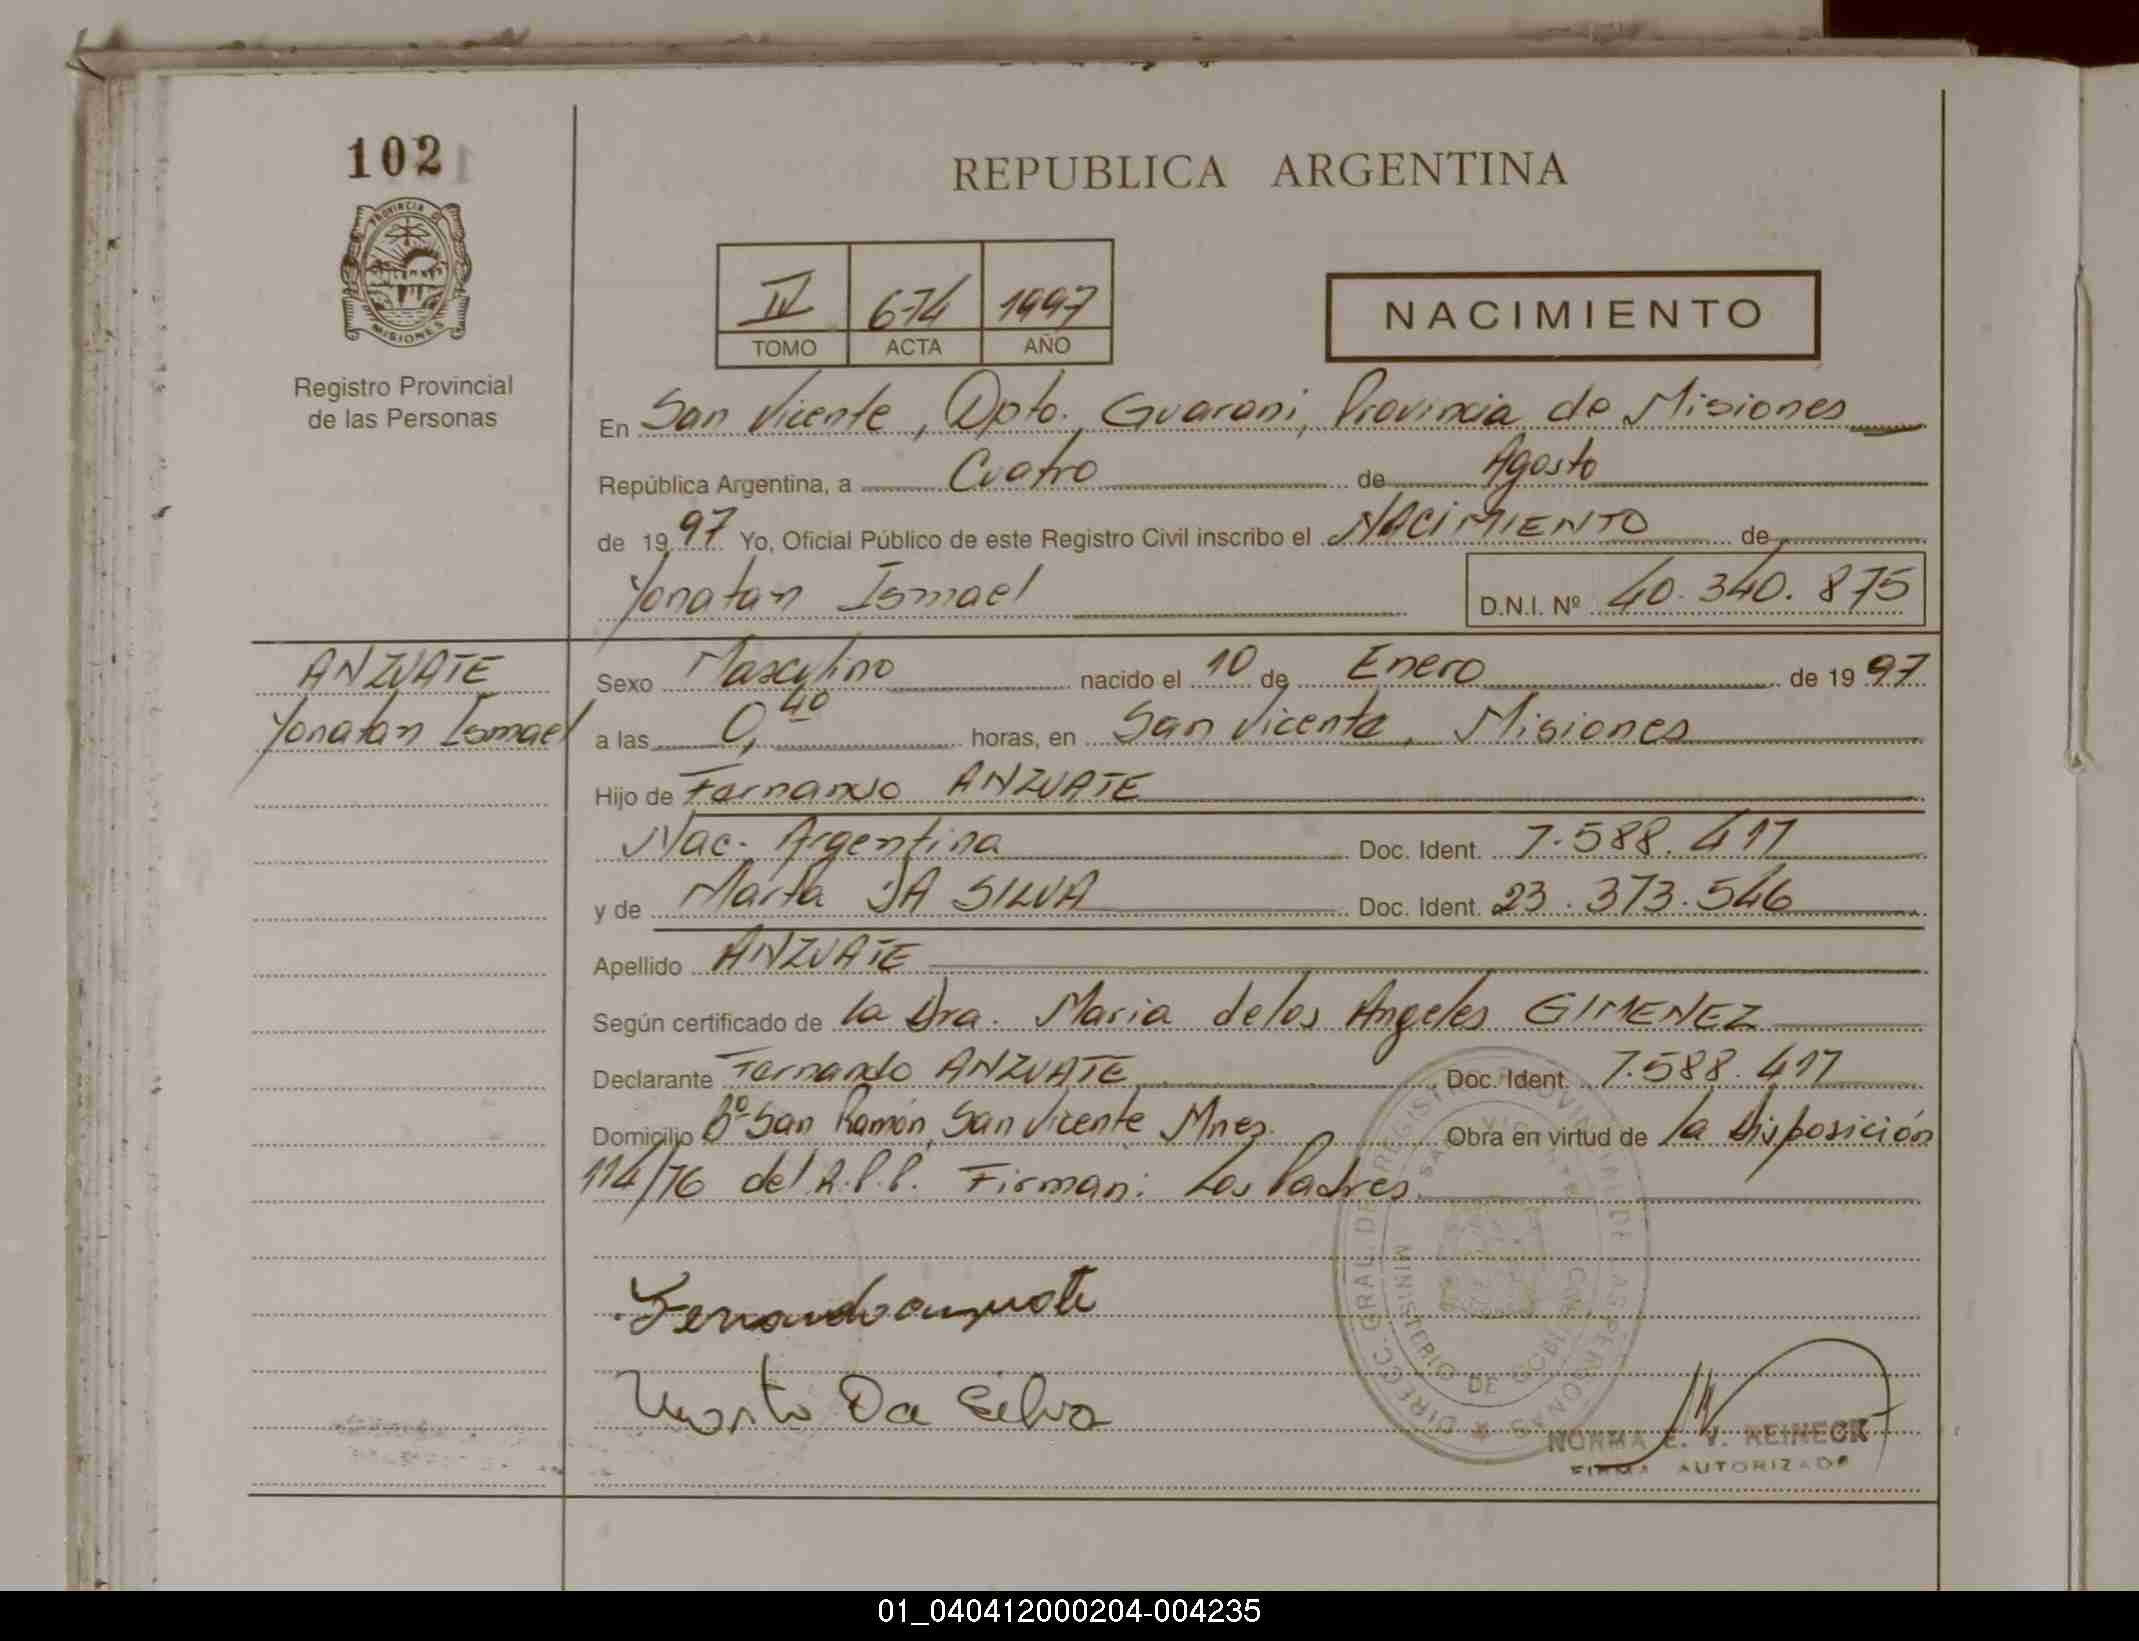 102
PROVINCIA DE
MISIONES
Registro Provincial
de las Personas
REPUBLICA ARGENTINA
IV 674 1997
TOMO ACTA AÑO
NACIMIENTO
En San Vicente, Dpto. Guarani, Provincia de Misiones
República Argentina, a Cuatro de Agosto
de 1997 Yo, Oficial Público de este Registro Civil inscribo el NACIMIENTO de
Yonatan Ismael D.N.I. Nº 40.340.875
ANZUATE
Yonatan Ismael
Sexo Masculino nacido el 10 de Enero de 1997
a las 0,40 horas, en San Vicente, Misiones
Hijo de Fernando ANZUATE
Nac. Argentina Doc. Ident. 7.588.417
y de Marta DA SILVA Doc. Ident. 23.373.546
Apellido ANZUATE
Según certificado de la Dra. Maria de los Angeles GIMENEZ
Declarante Fernando ANZUATE Doc. Ident. 7.588.417
Domicilio Bº San Ramón, San Vicente Mnes. Obra en virtud de la Disposición
114/76 del R.P.P. Firman: Los Padres
Fernando anzuate
Marta Da Silva
DIRECC. GRAL. DE REGISTRO PROVINCIAL DE LAS PERSONAS
SAN VICENTE
MINISTERIO DE GOBIERNO
NORMA E. V. REINECK
FIRMA AUTORIZADA
01_040412000204-004235